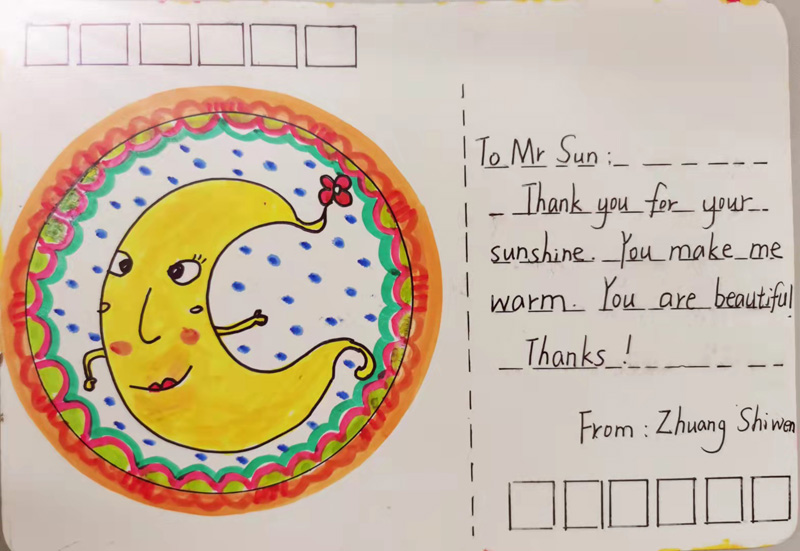 To Mr Sun :
Thank you for your
sunshine. You make me
warm. You are beautiful!
Thanks !
From : Zhuang Shiwen